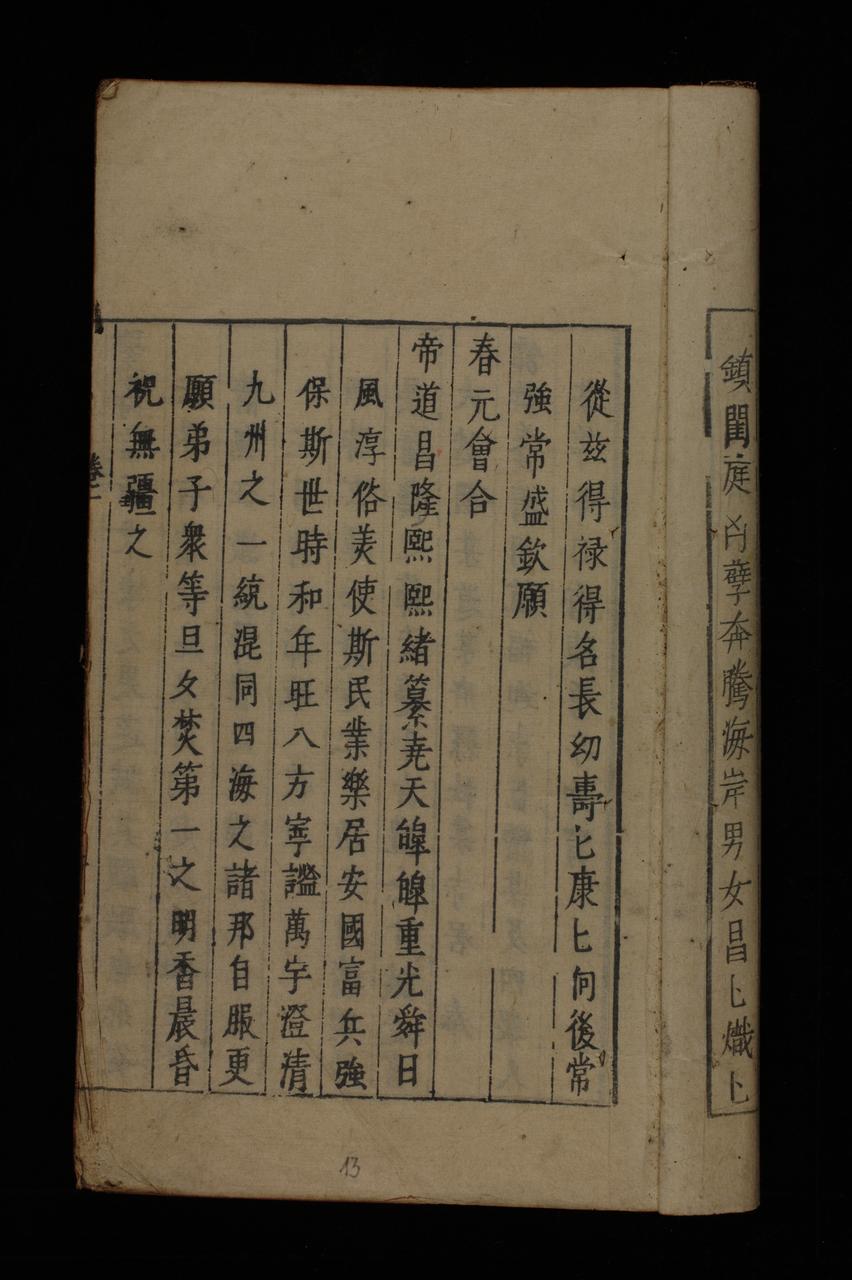 鎮閨庭凶孽奔騰海岸男女昌〻熾〻
從玆得禄得名長幼壽〻康〻向後常
強常盛欽願
春元會合
帝道昌隆熙熙緒纂尭天皥皥重光舜日
風淳俗美使斯民業樂居安國富兵強
保斯世時和年旺八方寧謐萬宇澄清
九州之一統混同四海之諸邦自服更
願弟子衆等旦夕焚第一之明香晨昏
祝無疆之
卷二
13